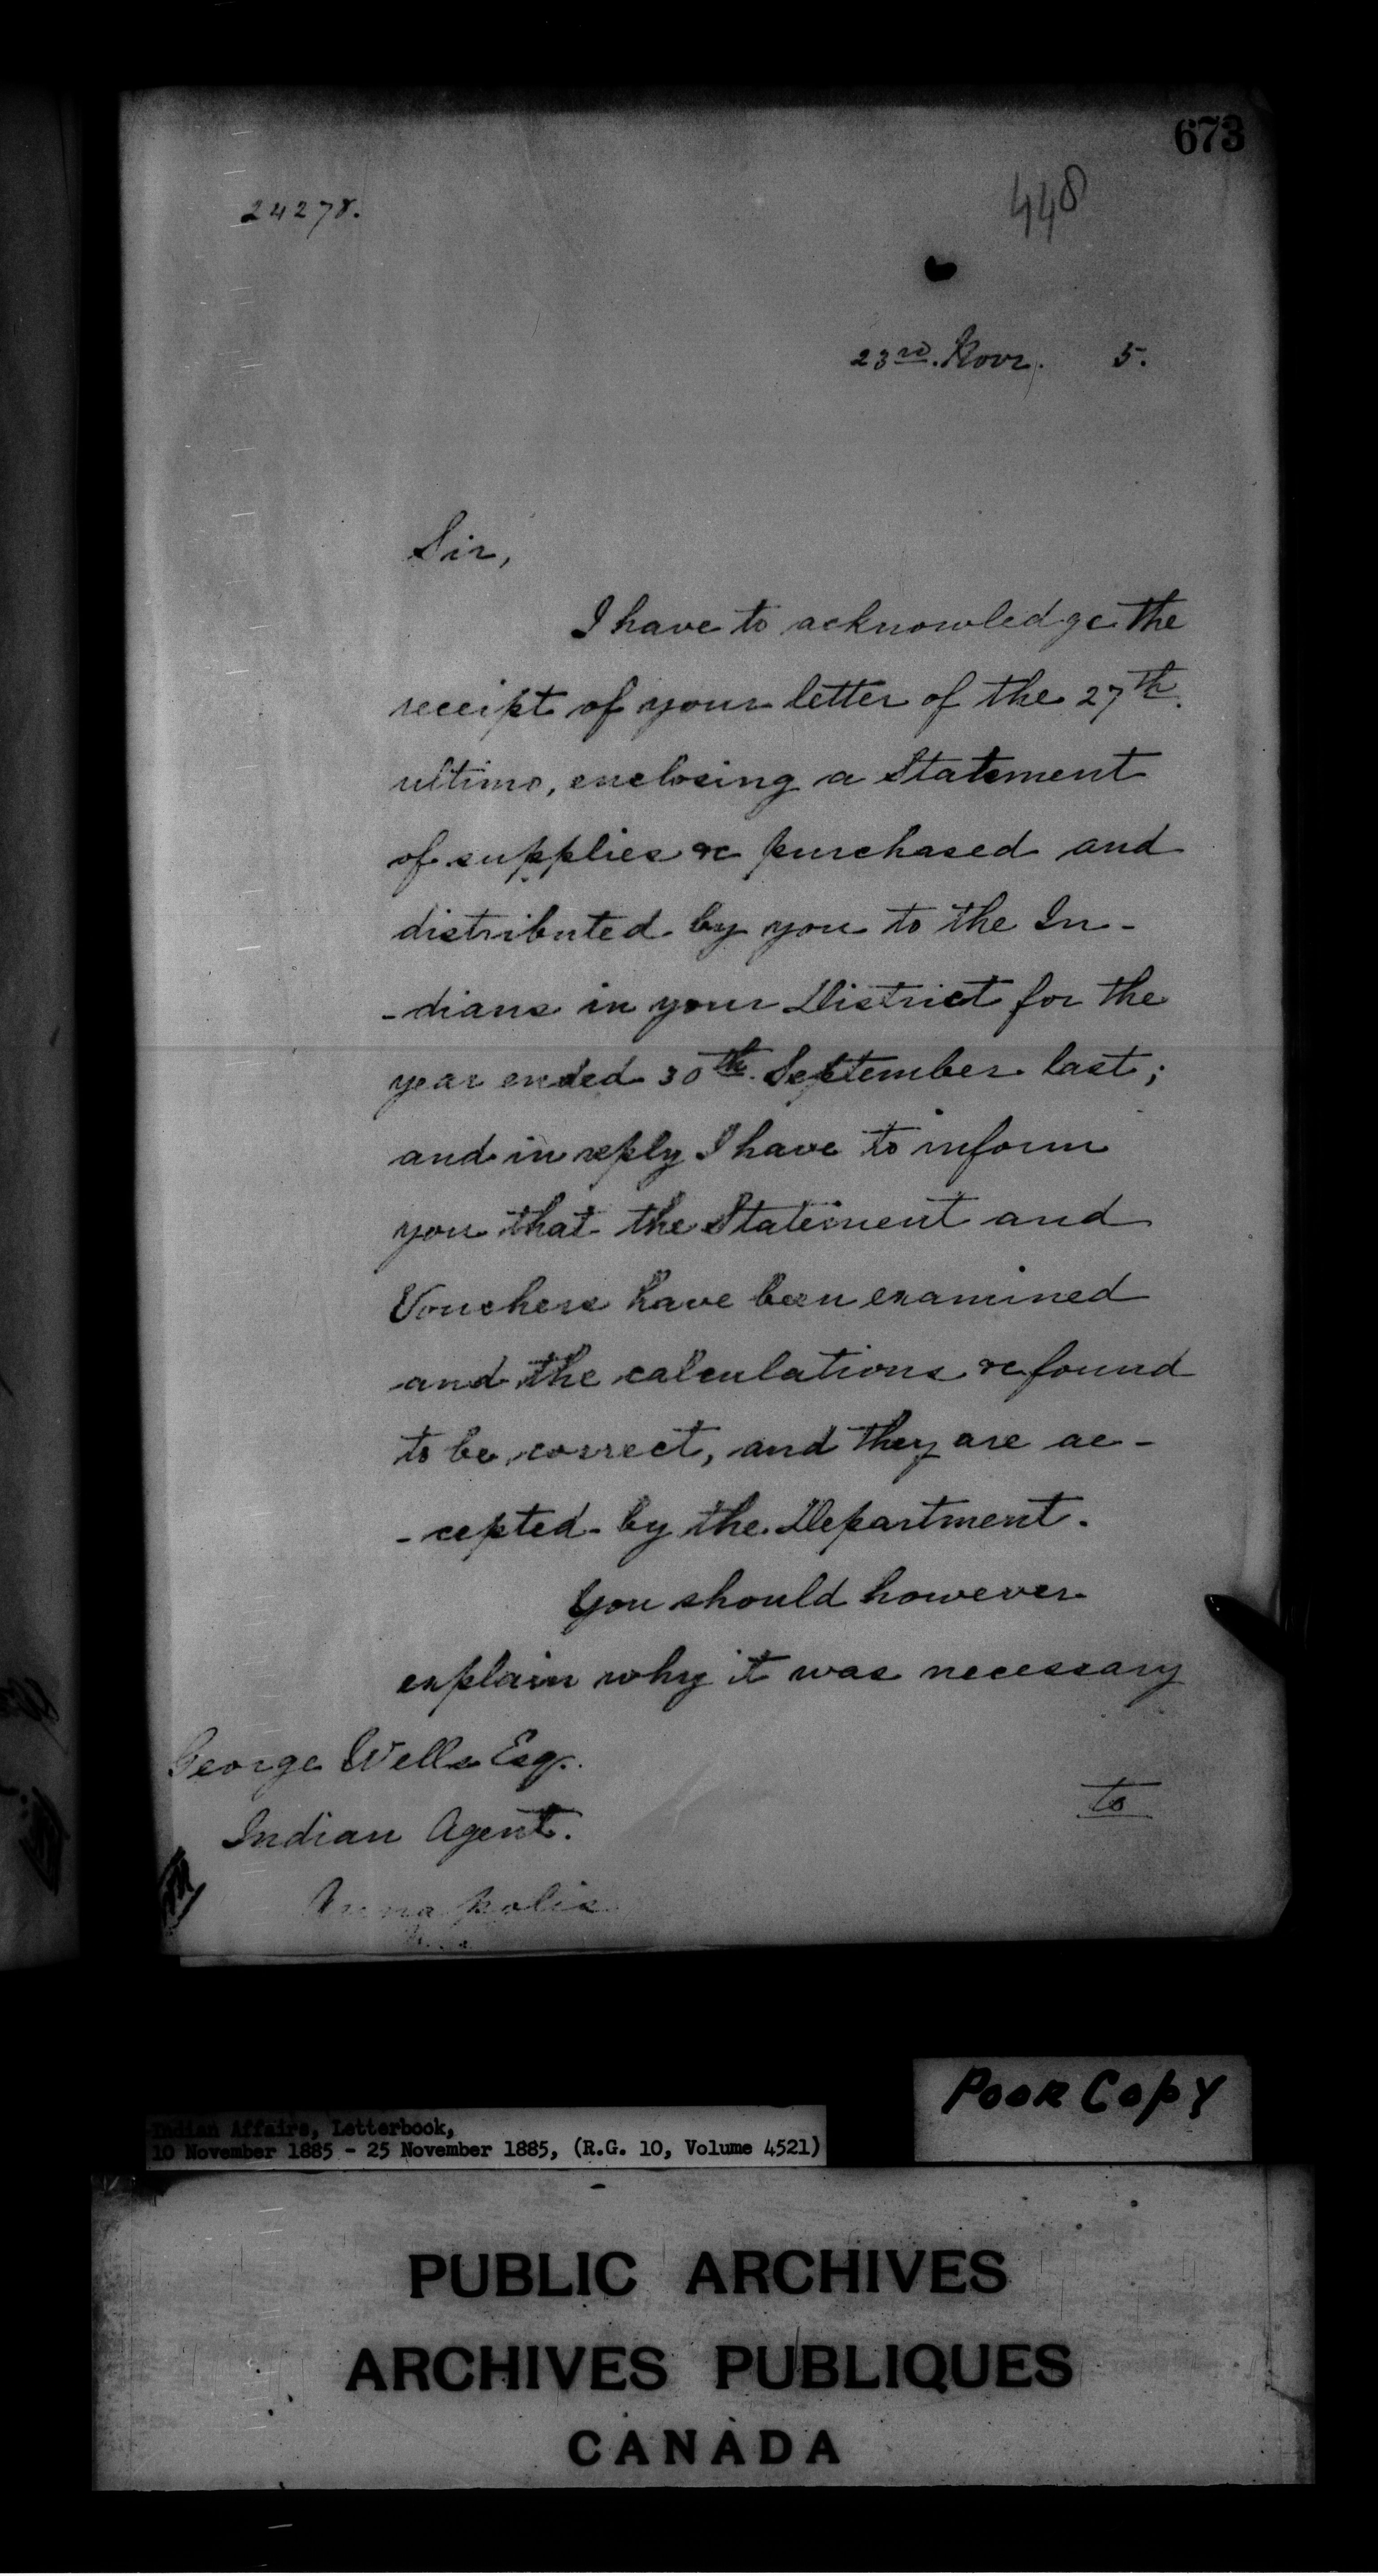 673
448
24278.
23rd. Novr. 5.
Sir,
I have to acknowledge the
receipt of your letter of the 27th.
ultimo, enclosing a Statement
of supplies &c purchased and
distributed by you to the In-
-dians in your District for the
year ended 30th. September last;
and in reply I have to inform
you that the Statement and
Vouchers have been examined
and the calculations &c found
to be correct, and they are ac-
-cepted by the Department.
You should however
explain why it was necessary
to
George Wells Esq.
Indian Agent.
Annapolis
Poor Copy
Indian Affairs, Letterbook,
10 November 1885 - 25 November 1885, (R.G. 10, Volume 4521)
PUBLIC ARCHIVES
ARCHIVES PUBLIQUES
CANADA